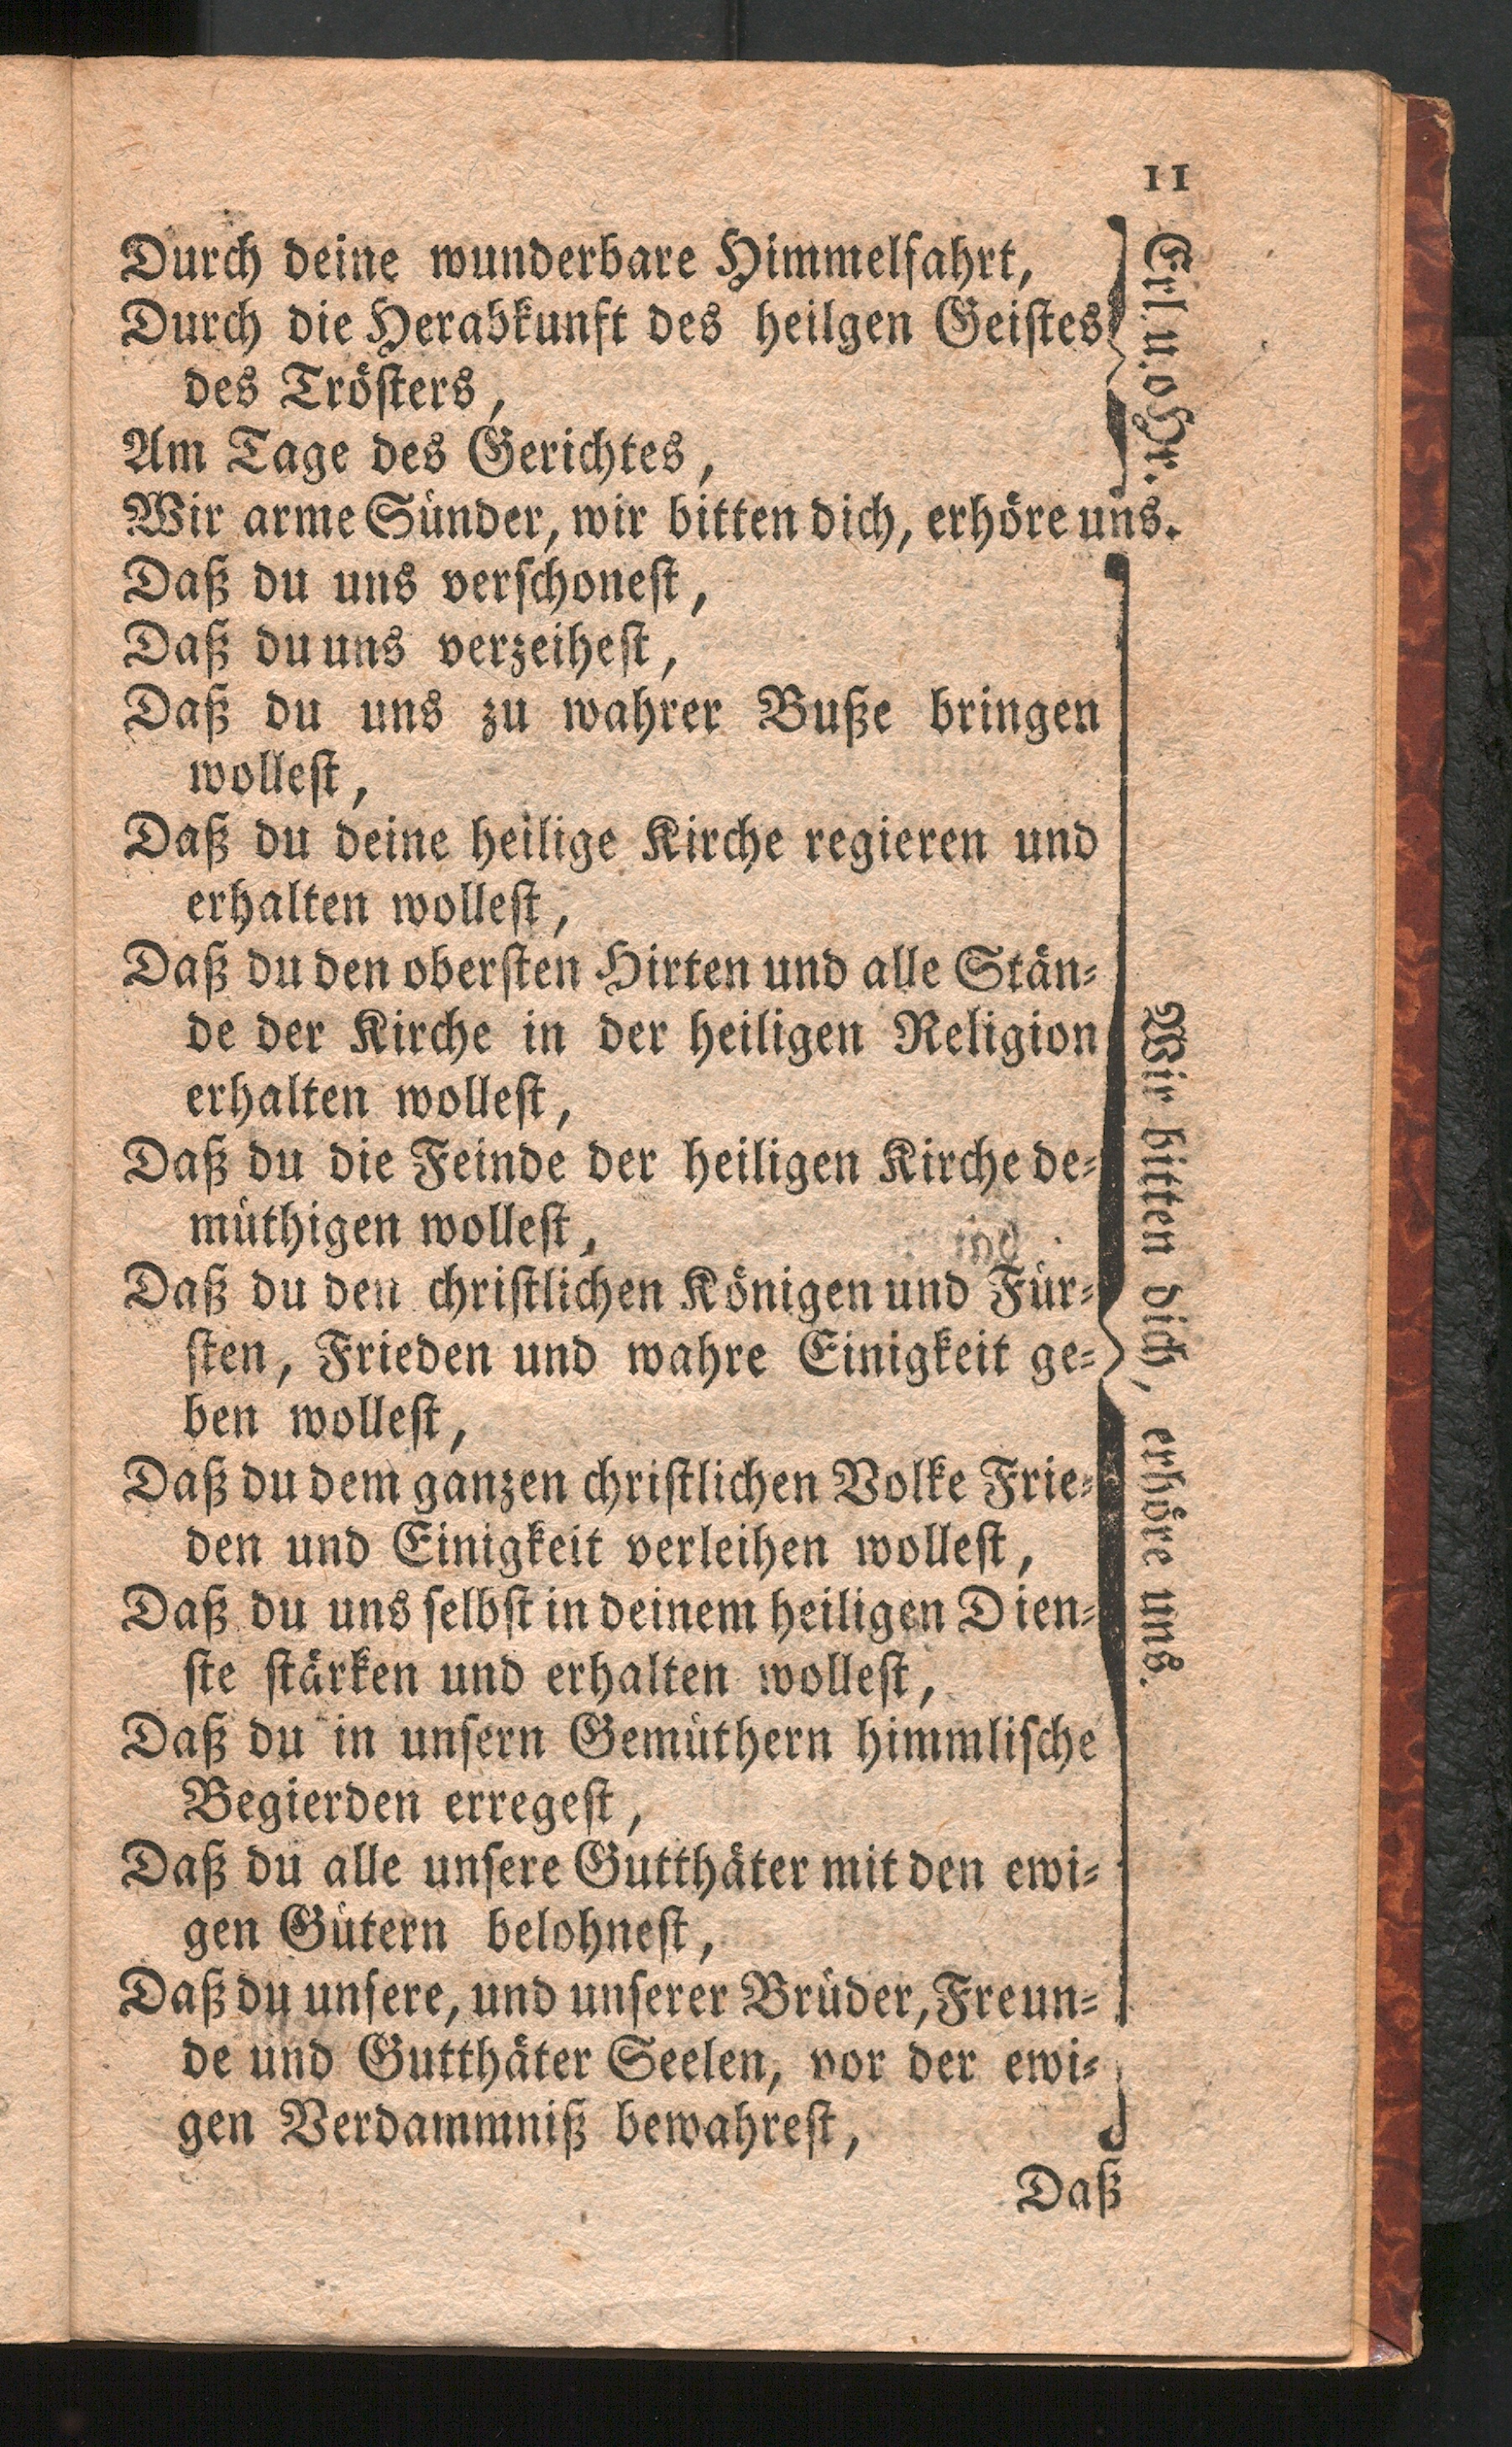 11
Durch deine wunderbare Himmelfahrt,
Durch die Herabkunft des heilgen Geistes
des Trösters,
Am Tage des Gerichtes,
Erl. u. o Hr.
Wir arme Sünder, wir bitten dich, erhöre uns.
Daß du uns verschonest,
Daß du uns verzeihest,
Daß du uns zu wahrer Buße bringen
wollest,
Daß du deine heilige Kirche regieren und
erhalten wollest,
Daß du den obersten Hirten und alle Stän=
de der Kirche in der heiligen Religion
erhalten wollest,
Daß du die Feinde der heiligen Kirche de=
müthigen wollest,
Daß du den christlichen Königen und Für=
sten, Frieden und wahre Einigkeit ge=
ben wollest,
Daß du dem ganzen christlichen Volke Frie=
den und Einigkeit verleihen wollest,
Daß du uns selbst in deinem heiligen Dien=
ste stärken und erhalten wollest,
Daß du in unsern Gemüthern himmlische
Begierden erregest,
Daß du alle unsere Gutthäter mit den ewi=
gen Gütern belohnest,
Daß du unsere, und unserer Brüder, Freun=
de und Gutthäter Seelen, vor der ewi=
gen Verdammniß bewahrest,
Wir bitten dich, erhöre uns.
Daß